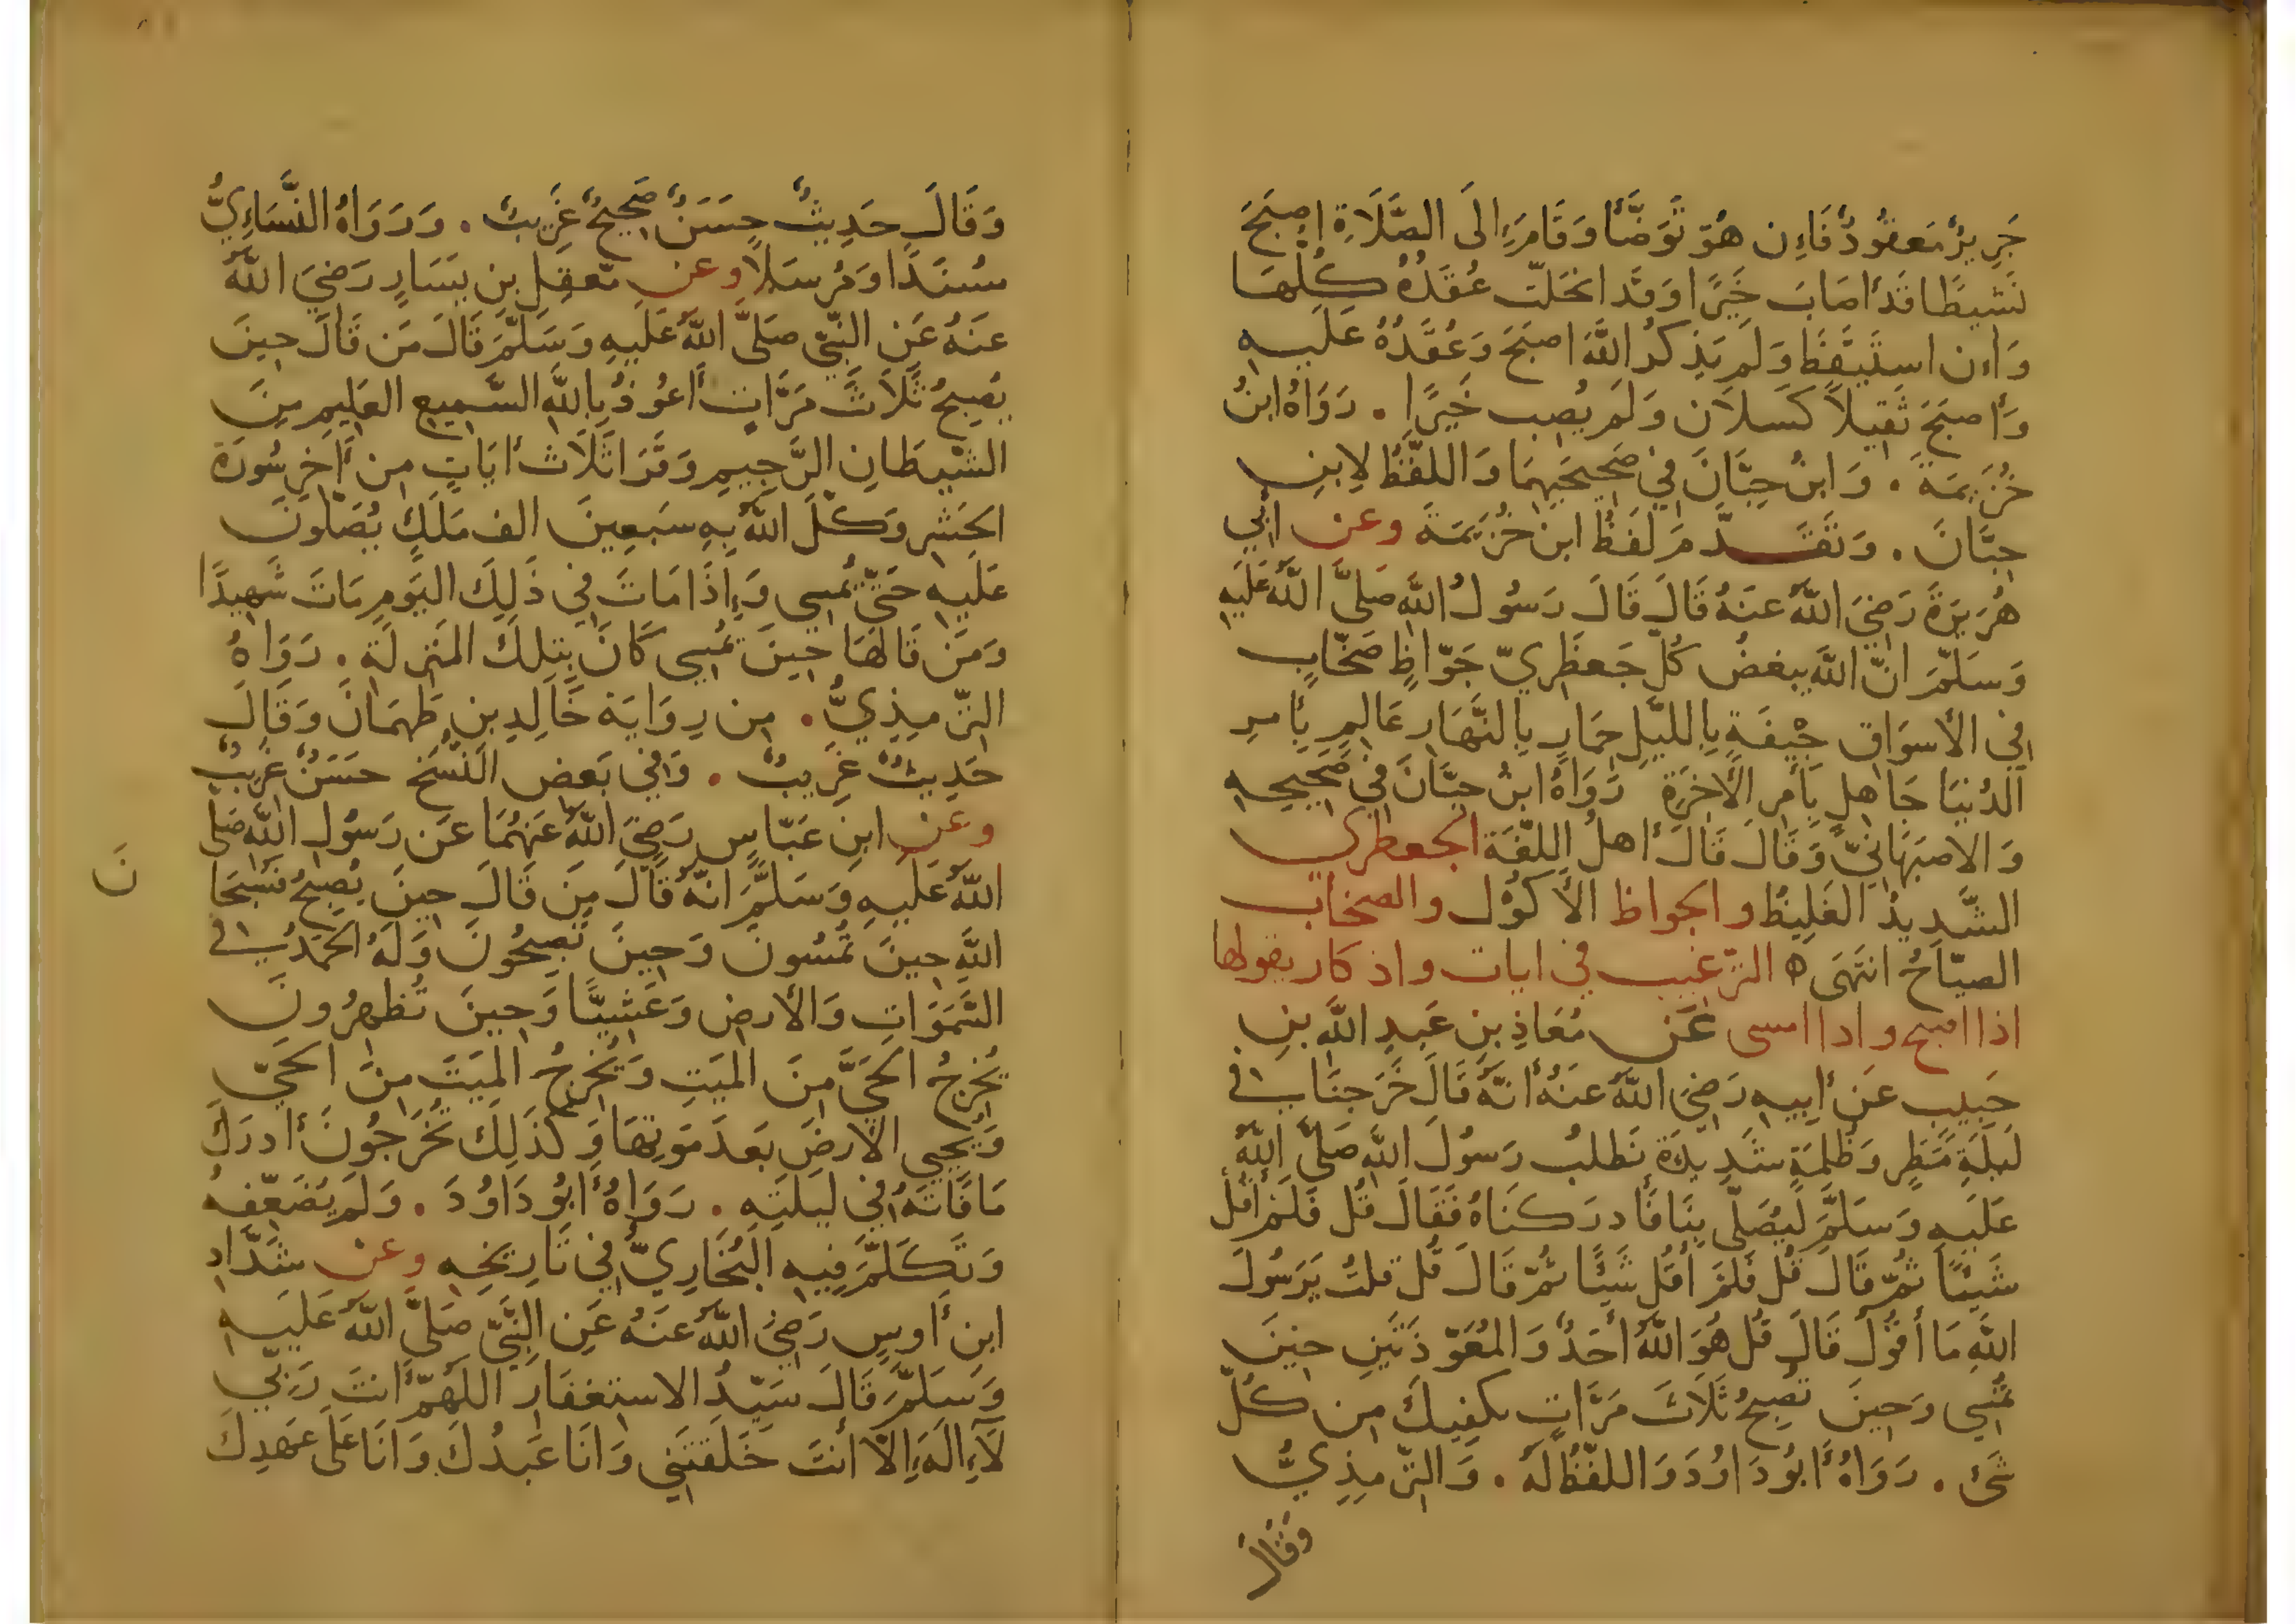 جَرِيرٌ مَعقُودٌ فَاءِن هُوَ تَوَضَّأَ وَقَامَ إِلَى الصَّلَاةِ اصبَحَ
نَشِيطًا قَد أَصَابَ خَيرًا وَقَد انحَلّت عُقَدُهُ كُلُّهَا
وَاءِن استَيقَظَ وَلَم يَذكُر اللَّهَ اصبَحَ وَعُقَدُهُ عَلَيهِ
وَأَصبَحَ ثَقِيلاً كَسلاَن وَلَم يُصِب خَيرًا . رَوَاهُ ابنُ
خُزَيمَةَ . وَابنُ حِبَّانَ فِي صَحِيحَيهِمَا وَاللفظُ لِابنِ
حِبَّانَ . وَتَقَدَّمَ لَفظُ ابن خُزَيمَةَ وعن ابِي
هُرَيرَةَ رَضِيَ اللَّهُ عَنهُ قَالَ قَالَ رَسُولُ اللَّهِ صَلَّى اللَّهُ عَلَيهِ
وَسَلَّمَ انَّ اللَّهَ يبغضُ كُلّ جَعظَرِيّ جَوّاظٍ صَخّابٍ
فِي الأسوَاق جِيفَةٍ بِالليلِ حِمَارٍ بِالنَّهَارِ عَالِمٍ بِأَمرِ
الدُنيَا جَاهِلٍ بِأَمرِ الأخِرَةِ رَوَاهُ ابنُ حبَّانَ فِي صَحِيحِهِ
وَالاصبَهَانِيّ وَقَالَ قَالَ أَهلُ اللغَّة الجعظرى
الشَّدِيدُ الغَلِيظُ والجواظ الأَكوُل والصخاب
الصيّاحُ انتَهَى ه الترّغيب فى ايات واذكار يقولها
اذا اصبح واذا امسى عَن مُعَاذِ بنِ عَبدِ اللَّهِ بنِ
خَبِيب عَن أَبِيهِ رَضِيَ اللَّهُ عَنهُ أَنَّهُ قَالَ خَرَجنَا فِي
لَيلَةِ مَطَرٍ وَظُلمَةٍ شَدِيدَةٍ نَطلبُ رَسُولَ اللَّهِ صَلَّى اللَّهُ
عَلَيهِ وَسَلَّمَ لِيُصَلّي بِنَا فَأَدرَكنَاهُ فَقَالَ قُل فَلَم أَقُل
شَيئًا ثُمّ قَالَ قُل فَلَم أَقُل شَيئًا ثُمّ قَالَ قُل قلتُ يَرَسُولَ
اللَّهِ مَا أَقُولُ قَالَ قُل هُوَ اللَّهُ أَحَدٌ وَالمُعَوّذَتَينِ حِينَ
تُمسِي وَحِينَ تُصبِحُ ثَلَاثَ مَرَّاتٍ يكفِيكَ مِن كُلّ
شَئ . رَوَاهُ أَبُو دَاوُدَ وَاللفظُ لَهُ . وَالتّرمِذِيُّ
وَقَالَ
وَقَالَ حَدِيثٌ حَسَنٌ صَحِيحٌ غَرِيبٌ . وَرَوَاهُ النَّسَاءِيُّ
مُسنَدًا وَمُرسَلًا وعن مَعقِلِ بنِ يَسَارٍ رَضِيَ اللَّهُ
عَنهُ عَنِ النَّبِيّ صَلَّى اللَّهُ عَلَيهِ وَسَلَّمَ قَالَ مَن قَالَ حِينَ
يُصبِحُ ثَلَاثَ مَرَّاتٍ أَعُوذُ بِاللَّهِ السَّمِيعِ العَلِيمِ مِنَ
الشَّيطَانِ الرَّجِيمِ وَقَرَا ثَلَاثَ أَيَاتٍ مِن أَخِرِ سُورَةِ
الحَشرِ وَكّلَ اللَّهُ بِهِ سَبعِينَ الف مَلَكٍ يُصَلّونَ
عَلَيهِ حَتَّى يُمسِي وَإِذَا مَاتَ فِي ذَلِكَ اليَومِ مَاتَ شَهِيدًا
وَمَن قَالَهَا حِينَ يُمسِي كَانَ بِتِلكَ المَنزِلَةِ . رَوَاهُ
التّرمِذِيُّ . مِن رِوَايَة خَالِدِ بنِ طَهمَانَ وَقَالَ
حَدِيثٌ غَرِيبٌ . وَفِي بَعضِ النُّسَخِ حَسَنٌ غَرِيبٌ
وعن ابنِ عَبّاسٍ رَضِيَ اللَّهُ عَنهُمَا عَن رَسُولِ اللَّهِ صَلى
اللَّهُ عَلَيهِ وَسَلَّمَ انَّهُ قَالَ مَن قَالَ حِينَ يُصبِحُ فَسُبحَا
نَ
اللَّهِ حِينَ تُمسُونَ وَحِينَ تُصبِحُونَ وَلَهُ الحَمدُ فِي
السَّمَوَاتِ وَالأَرضِ وَعَشِيًّا وَحِينَ تُظهِرُونَ
يُخرِجُ الحَيَّ مِنَ المَيتِ وَيُخرِجُ المَيتَ مِنَ الحَيّ
وَيُحيِي الأَرضَ بَعدَ مَوتِهَا وَكَذَلِكَ تُخرَجُونَ أَدرَكَ
مَا فَاتَهُ فِي لَيلَتِهِ . رَوَاهُ أَبُو دَاوُدَ . وَلَم يُضَعِّفهُ
وَتَكَلَّمَ فِيهِ البُخَارِيُّ فِي تَارِيخِهِ وعن شَدَّادِ
ابن أَوسٍ رَضِيَ اللَّهُ عَنهُ عَنِ النَّبِيّ صَلَّى اللَّهُ عَلَيهِ
وَسَلَّمَ قَالَ سَيّدُ الاستِغفَارِ اللَّهُمَّ أَنتَ رَبِّي
لَآءِلَهَ إِلَّا أَنتَ خَلَقتَنِي وَانَا عَبدُكَ وَانَا عَلَى عَهدِكَ